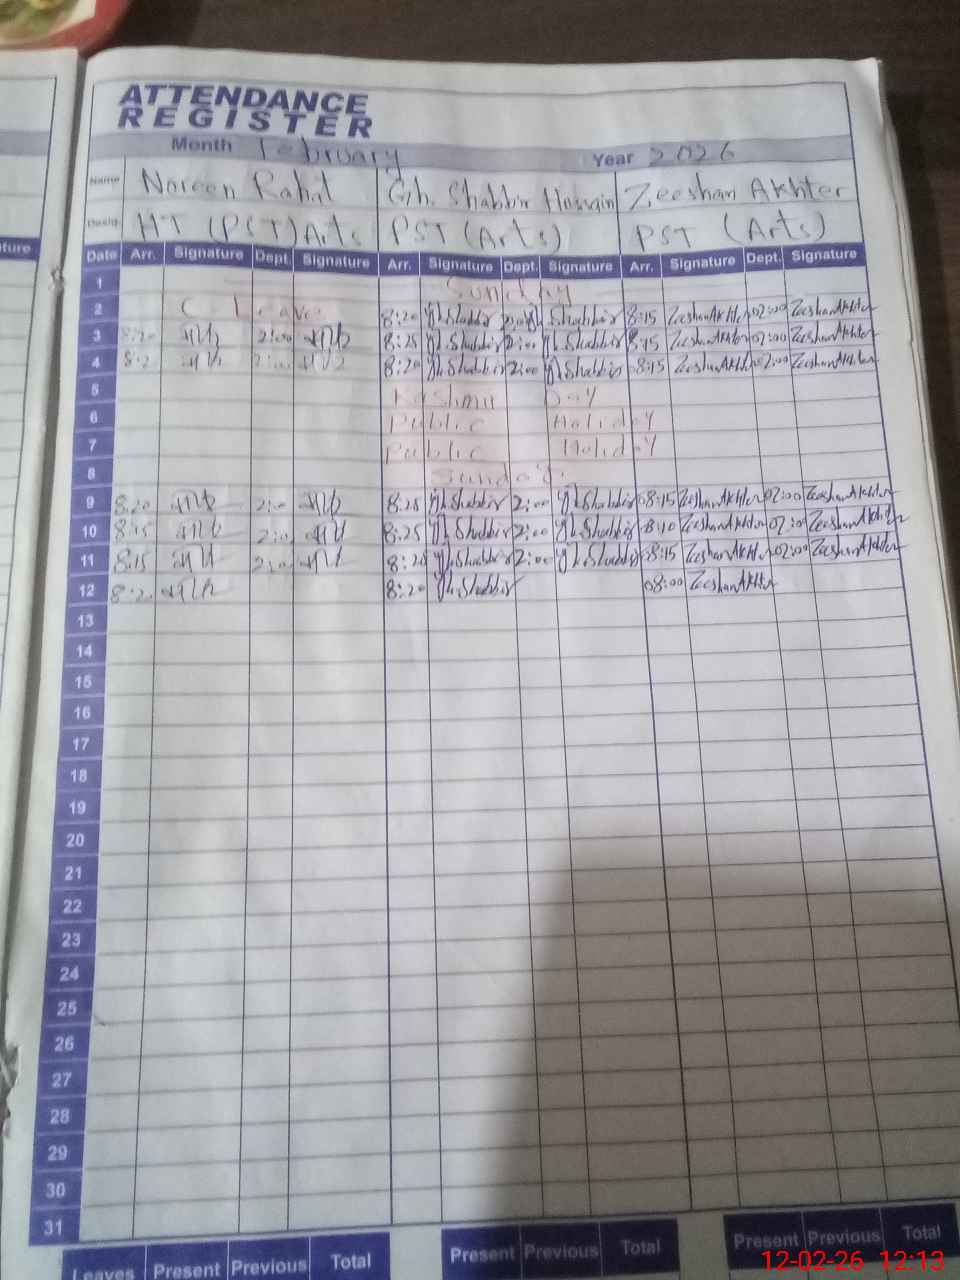 ATTENDANCE
REGISTER
Month February Year 2026
Name Noreen Gh. Shabbir Hussain Zeeshan Akhter
Desig HT (PST) Arts PST (Arts) PST (Arts)
Date Arr. Signature Dept. Signature Arr. Signature Dept. Signature Arr. Signature Dept. Signature
1 Sunday
2 C. Leave 8:20 Gh.Shabbir Gh.Shabbir 8:15 ZeeshanAkhter 02:00 ZeeshanAkhter
3 8:20 2:00 8:25 Gh.Shabbir 2:00 Gh.Shabbir 8:15 ZeeshanAkhter 02:00 ZeeshanAkhter
4 8:20 Gh.Shabbir 2:00 Gh.Shabbir 08:15 ZeeshanAkhter 02:00 ZeeshanAkhter
5 Kashmir Day
6 Public Holiday
7 Public Holiday
8 Sunday
9 8:20 2:00 8:25 Gh.Shabbir 2:00 Gh.Shabbir 08:15 ZeeshanAkhter 02:00 ZeeshanAkhter
10 8:15 2:00 8:25 Gh.Shabbir 2:00 Gh.Shabbir ZeeshanAkhter 02:00 ZeeshanAkhter
11 8:15 2:00 8:20 Gh.Shabbir 2:00 Gh.Shabbir 08:15 ZeeshanAkhter 02:00 ZeeshanAkhter
12 8:20 8:20 Gh.Shabbir 08:00 ZeeshanAkhter
13
14
15
16
17
18
19
20
21
22
23
24
25
26
27
28
29
30
31
Leaves Present Previous Total Present Previous Total Present Previous Total
12-02-26 12:13